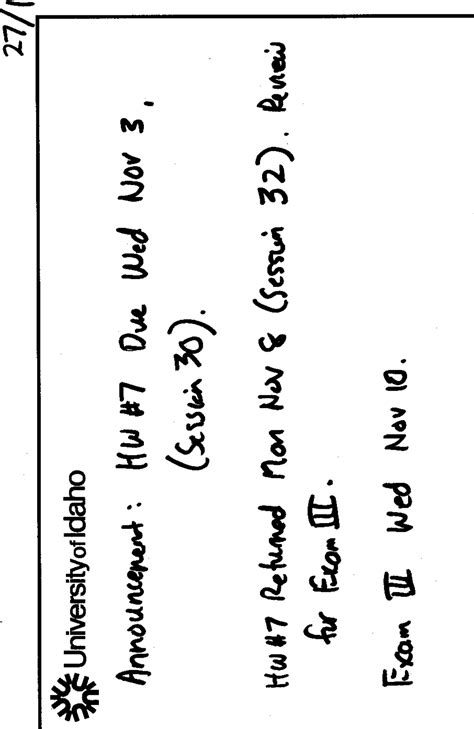 27/
University of Idaho
Announcement: HW #7 Due Wed Nov 3,
(Session 30).
HW #7 Returned Mon Nov 8 (Session 32). Review
for Exam III.
Exam III Wed Nov 10.